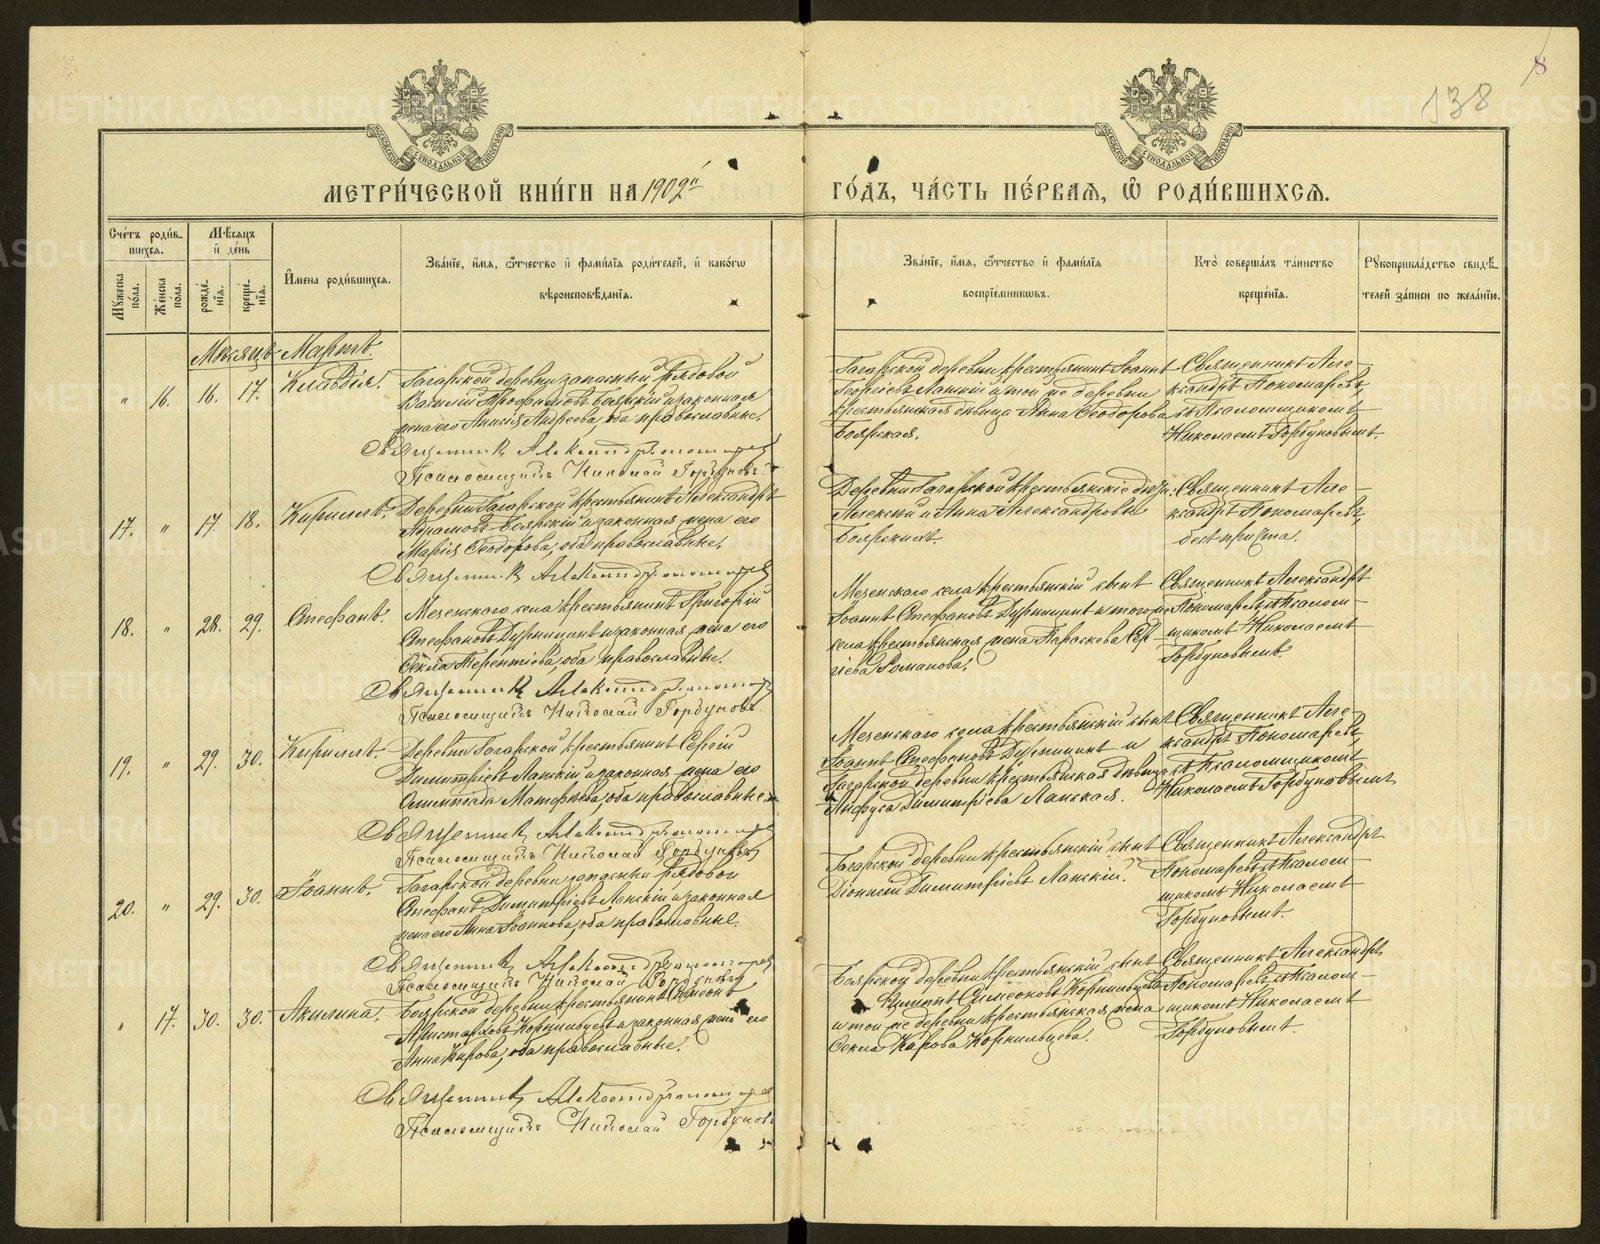 138
8
МЕТРИ́ЧЕСКОЙ КНИ́ГИ НА 1902й ГО́ДЪ, ЧА́СТЬ ПЕ́РВАѦ, Ѽ РОДИ́ВШИХСѦ.
Сче́тъ роди́вшихсѧ.
Мꙋ́жеска по́ла.
Же́нска по́ла.
Мѣ́сѧцъ и҆ де́нь
рожде́нїѧ.
креще́нїѧ.
И҆мена роди́вшихсѧ.
Зва́нїе, и҆́мѧ, ѻ҆́тчество и҆ фами́лїѧ роди́телей, и҆ како́гѡ
вѣроисповѣ́данїѧ.
Зва́нїе, и҆́мѧ, ѻ҆́тчество и҆ фами́лїѧ
воспрїе́мникѡвъ.
Кто̀ соверша́лъ та́инство
креще́нїѧ.
Рꙋкоприкла́дство свидѣ́-
телей за́писи по жела́нїю.
Мѣсяцъ Мартъ.
" 16. 16. 17. Клавдія.
Гагарской деревни запасный рядовой
Василій Трофимовъ Боярскій и законная
жена его Анисія Андреева, оба православные.
Священникъ Александръ Пономаревъ
Псаломщикъ Николай Горбуновъ
Гагарской деревни крестьянинъ Іоаннъ
Георгіевъ Ланскій и той же деревни
крестьянская дѣвица Анна Ѳеодорова
Боярская.
Священникъ Але-
ксандръ Пономаревъ
съ Псаломщикомъ
Николаемъ Горбуновымъ.
17. " 17. 18. Кириллъ.
Деревни Гагарской крестьянинъ Александръ
Абрамовъ Боярскій и законная жена его
Марія Ѳеодорова, оба православные.
Священникъ Александръ Пономаревъ
Деревни Гагарской крестьянскіе дѣти:
Алексій и Анна Александровы
Боярскихъ.
Священникъ Але-
ксандръ Пономаревъ,
безъ причта.
18. " 28. 29. Стефанъ.
Мезенскаго села крестьянинъ Григорій
Стефановъ Дурницинъ и законная жена его
Ѳекла Терентіева, оба православные.
Священникъ Александръ Пономаревъ
Псаломщикъ Николай Горбуновъ
Мезенскаго села крестьянскій сынъ
Іоаннъ Стефановъ Дурницинъ и того же
села крестьянская жена Параскева Сер-
гіева Романова.
Священникъ Александръ
Пономаревъ съ Псалом-
щикомъ Николаемъ
Горбуновымъ.
19. " 29. 30. Кириллъ.
Деревни Гагарской крестьянинъ Сергій
Димитріевъ Ланскій и законная жена его
Олимпіада Матфѣева, оба православные.
Священникъ Александръ Пономаревъ
Псаломщикъ Николай Горбуновъ
Мезенскаго села крестьянскій сынъ
Іоаннъ Стефановъ Дурницинъ и
Гагарской деревни крестьянская дѣвица
Анфуса Димитріева Ланская.
Священникъ Але-
ксандръ Пономаревъ,
съ Псаломщикомъ
Николаемъ Горбуновымъ
20. " 29. 30. Іоаннъ.
Гагарской деревни запасный рядовой
Стефанъ Димитріевъ Ланскій и законная
жена его Анна Іоаннова, оба православные.
Священникъ Александръ Пономаревъ
Псаломщикъ Николай Горбуновъ
Гагарской деревни крестьянскій сынъ
Діонисій Димитріевъ Ланскій.
Священникъ Александръ
Пономаревъ съ Псалом-
щикомъ Николаемъ
Горбуновымъ.
" 17. 30. 30. Акилина.
Боярской деревни крестьянинъ Симеонъ
Аристарховъ Корнильцевъ и законная жена его
Анна Кирова, оба православные.
Священникъ Александръ Пономаревъ
Псаломщикъ Николай Горбуновъ
Боярской деревни крестьянскій сынъ
Симеоновъ Корнильцевъ
и той же деревни крестьянская жена
Ѳекла Карова Корнильцева.
Священникъ Александръ
Пономаревъ съ Псалом-
щикомъ Николаемъ
Горбуновымъ.
METRIKI.GASO-URAL.RU